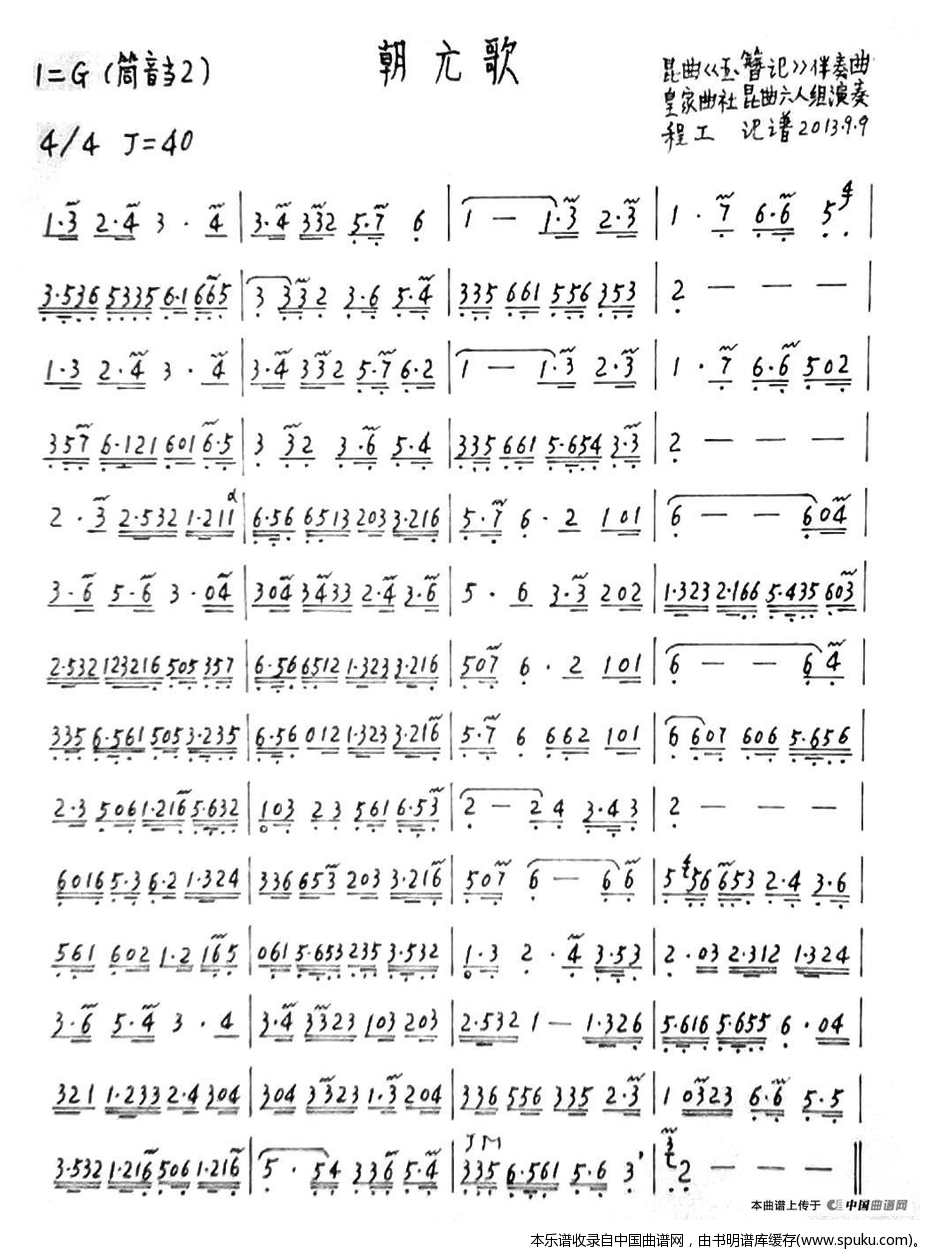 朝元歌
1=G (筒音当2)
4/4 J=40
昆曲《玉簪记》伴奏曲
皇家曲社昆曲六人组演奏
程工 记谱2013.9.9
1·3 2·4 3 · 4 | 3·4 332 5·7 6 | 1 — 1·3 2·3 | 1 · 7 6·6 5 |
3·536 5335 6·1 665 | 3 332 3·6 5·4 | 335 661 556 353 | 2 — — — |
1·3 2·4 3 · 4 | 3·4 332 5·7 6·2 | 1 — 1·3 2·3 | 1 · 7 6·6 502 |
357 6·121 601 6·5 | 3 32 3·6 5·4 | 335 661 5·654 3·3 | 2 — — — |
2 · 3 2·532 1·211 | 6·56 6513 203 3·216 | 5·7 6 · 2 101 | 6 — — 604 |
3·6 5·6 3 · 04 | 304 3433 2·4 3·6 | 5 · 6 3·3 202 | 1·323 2·166 5·435 603 |
2·532 123216 505 357 | 6·56 6512 1·323 3·216 | 507 6 · 2 101 | 6 — — 64 |
335 6·561 505 3·235 | 6·56 012 1·323 3·216 | 5·7 6 662 101 | 6 607 606 5·656 |
2·3 506 1·216 5·632 | 103 23 561 6·53 | 2 — 24 3·43 | 2 — — — |
6016 5·3 6·2 1·324 | 336 653 203 3·216 | 507 6 — 66 | 5 56 6653 2·4 3·6 |
561 602 1·2 165 | 061 5·653 235 3·532 | 1·3 2 · 4 3·53 | 2 · 03 2·312 1·324 |
3·6 5·4 3 · 4 | 3·4 3323 103 203 | 2·532 1 — 1·326 | 5·616 5·655 6 · 04 |
321 1·233 2·4 304 | 304 3323 1·3 204 | 336 556 335 2·3 | 1 0323 6·6 5·5 |
3·532 1·216 506 1·216 | 5 · 54 336 5·4 | 335 6·561 5·6 3 | 2 — — — ‖
本曲谱上传于 中国曲谱网
本乐谱收录自中国曲谱网，由书明谱库缓存(www.spuku.com)。